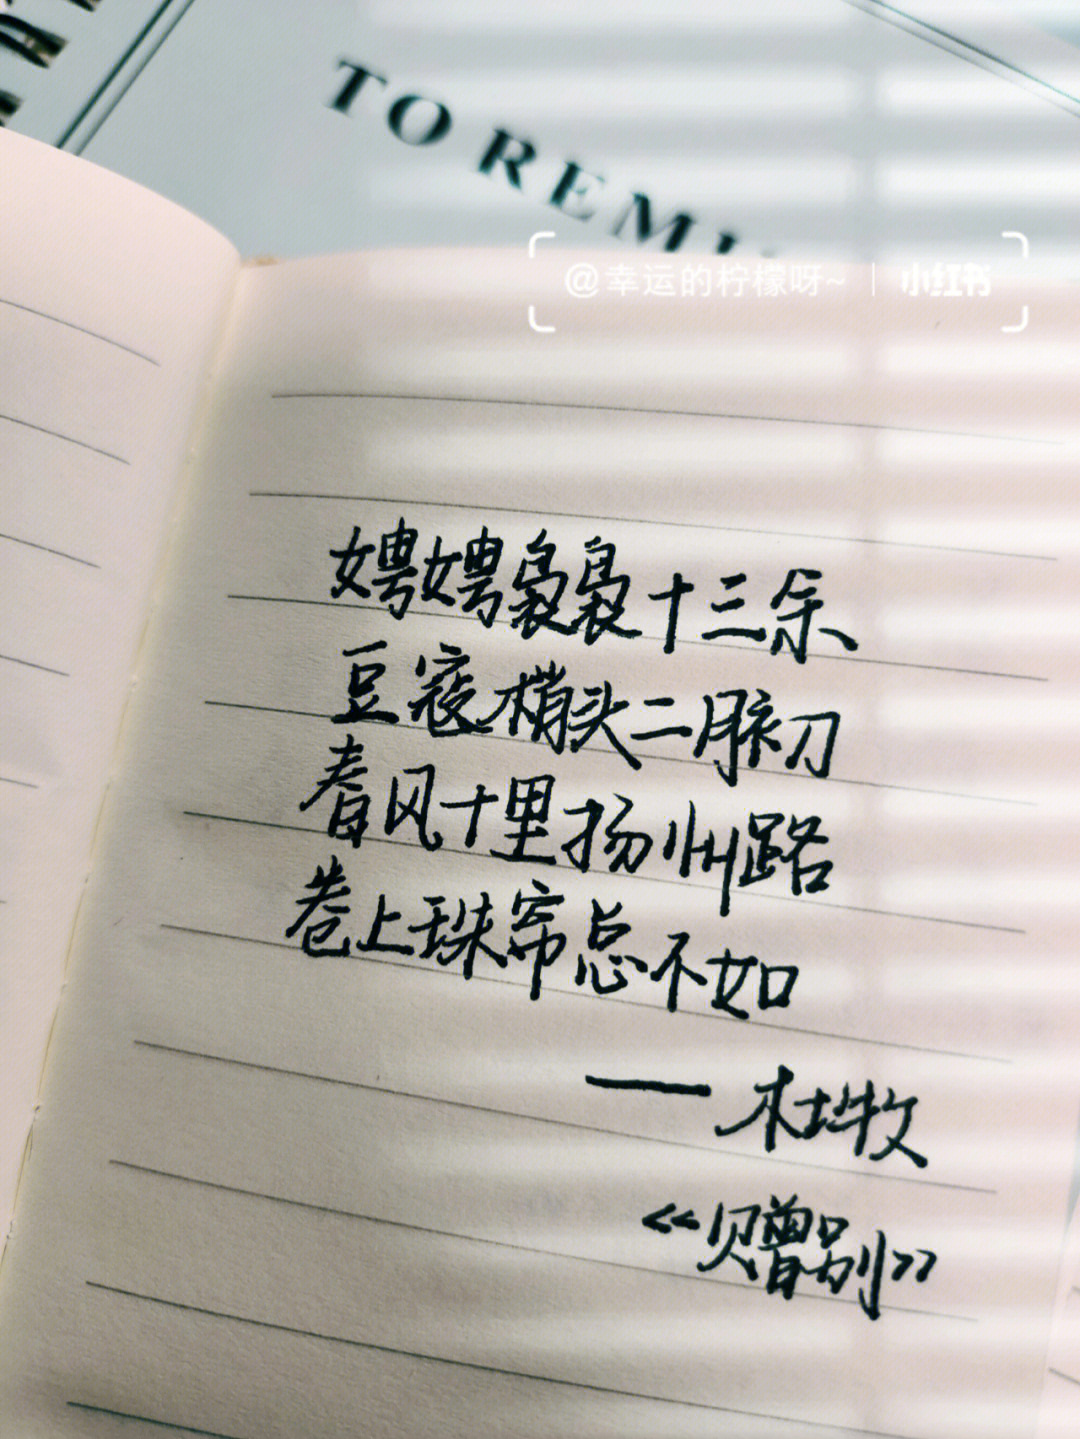 TO REM
@幸运的柠檬呀~ | 小红书
娉娉袅袅十三余
豆蔻梢头二月初
春风十里扬州路
卷上珠帘总不如
—杜牧
《赠别》